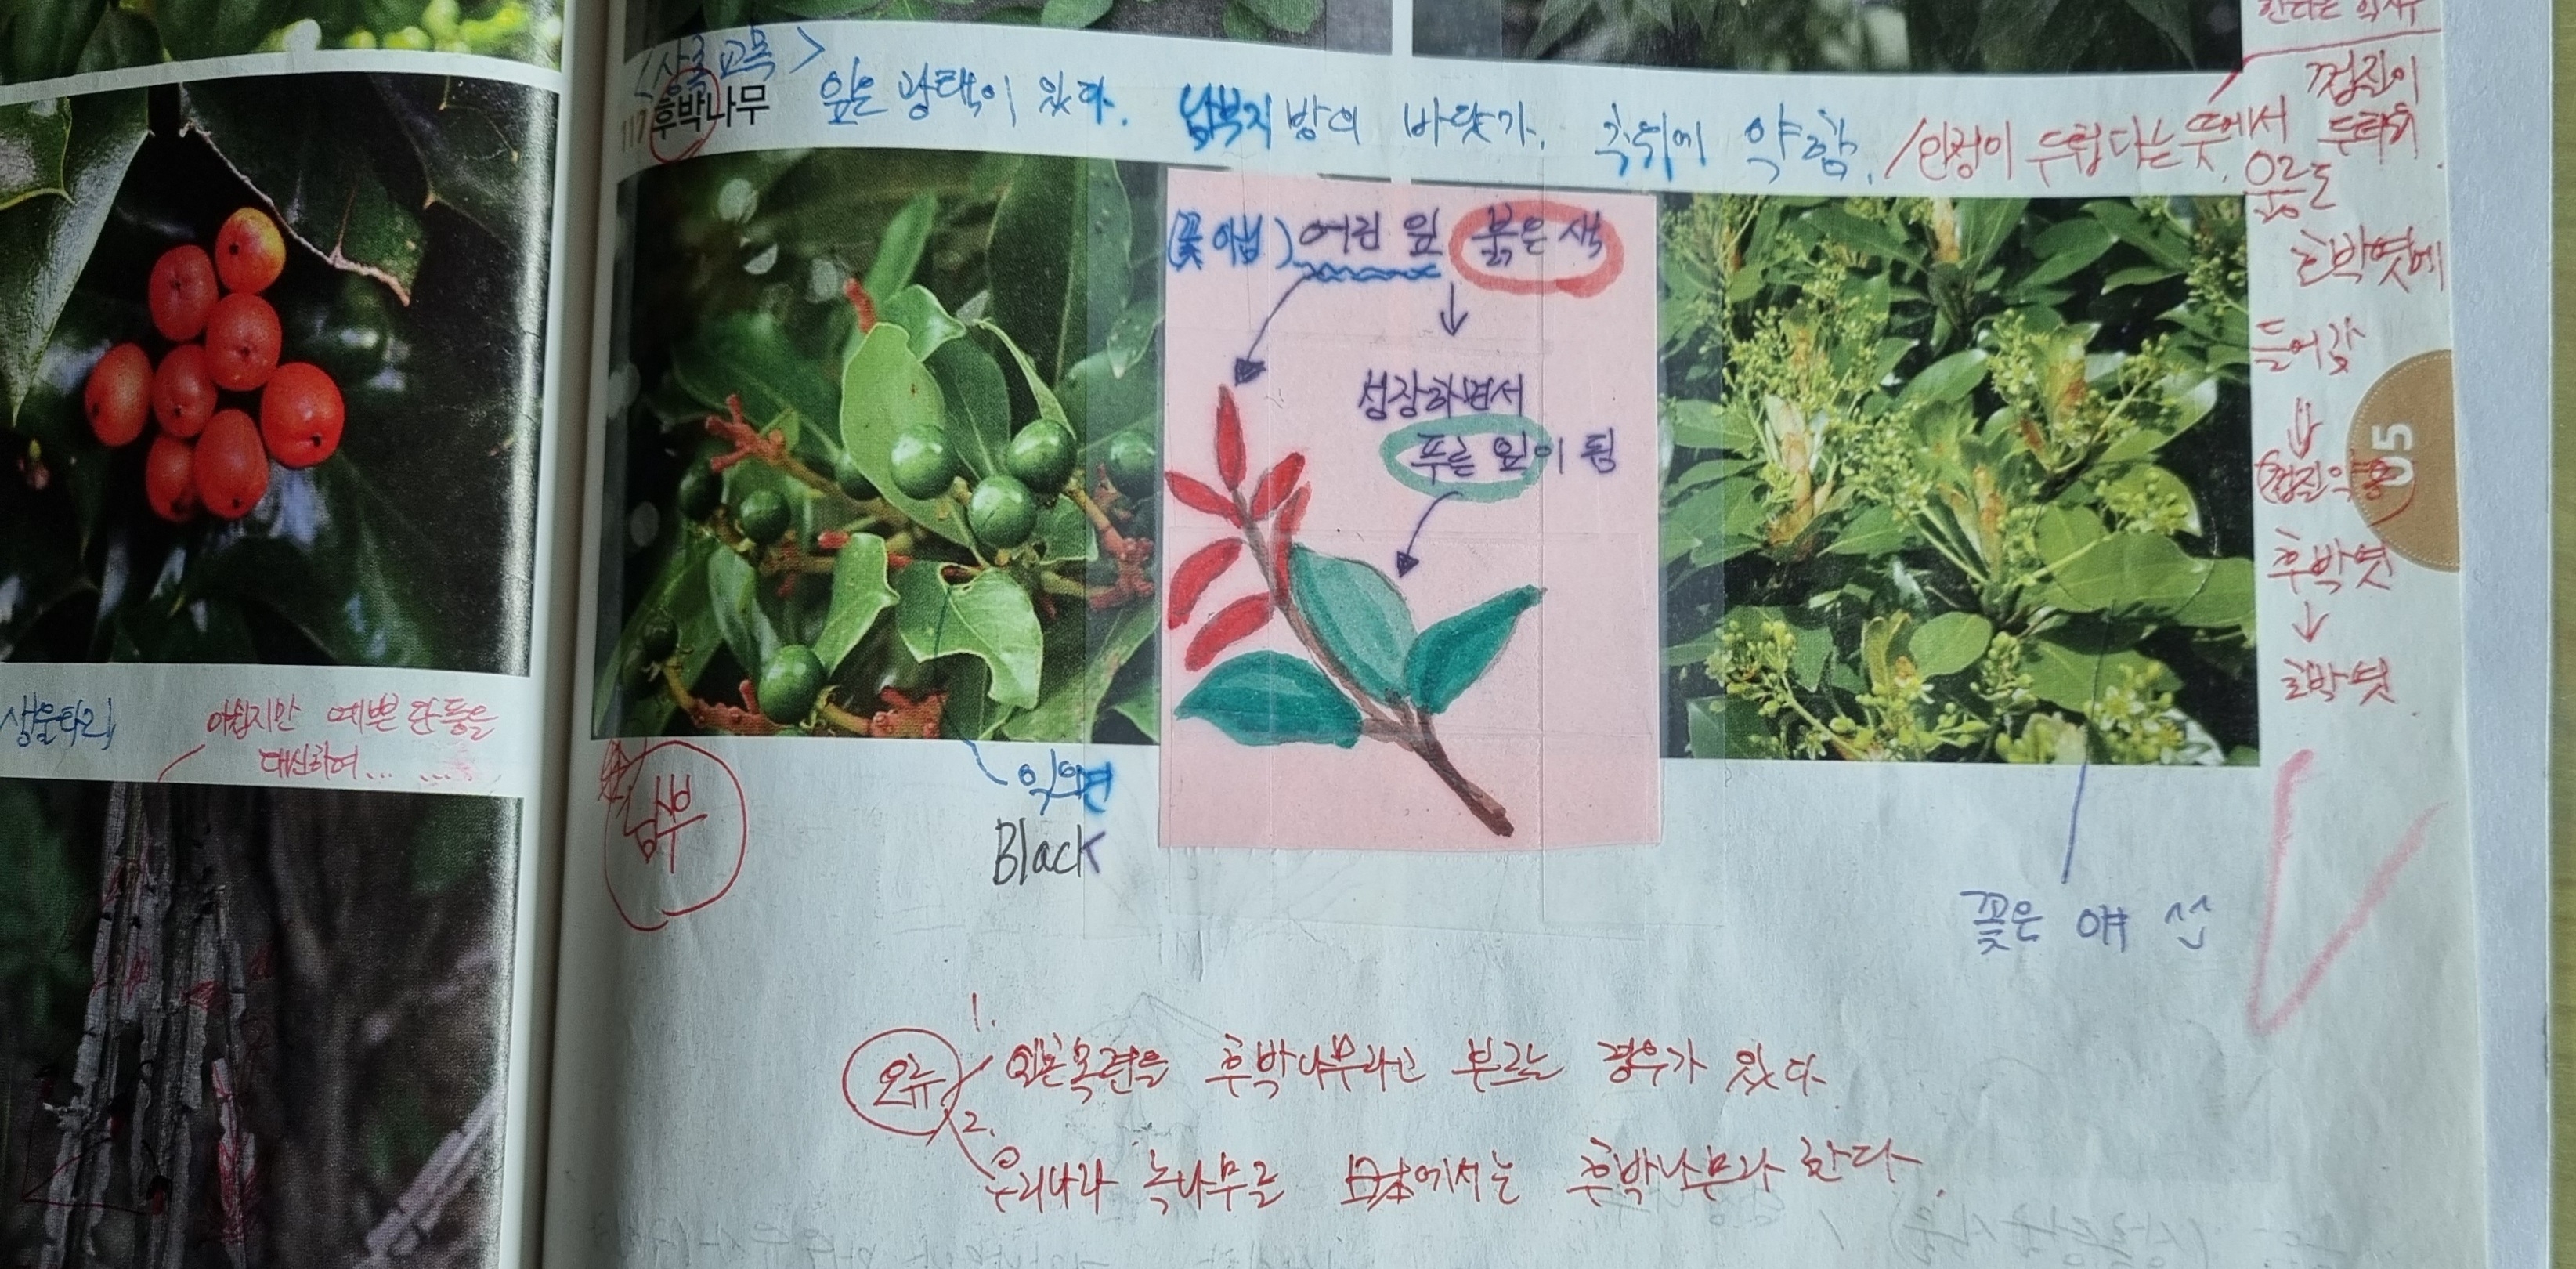 <상록교목>
117 후박나무 잎은 광택이 있다. 남부지방의 바닷가. 추위에 약함. /인정이 두텁다는 뜻에서
껍질이
두터워.
옛날도
호박엿에
들어감
⇓
(껍질약용)
후박엿
↓
호박엿
(꽃 아님) 어린 잎 붉은 색
↓
성장하면서
푸른 잎이 됨
생울타리
아쉽지만 예쁜 단풍을
대신하여... ....
남부
익으면
Black
꽃은 애 ^^
05
오류
1. 일본목련을 후박나무라고 부르는 경우가 있다.
2. 우리나라 녹나무를 日本에서는 후박나무라 한다.